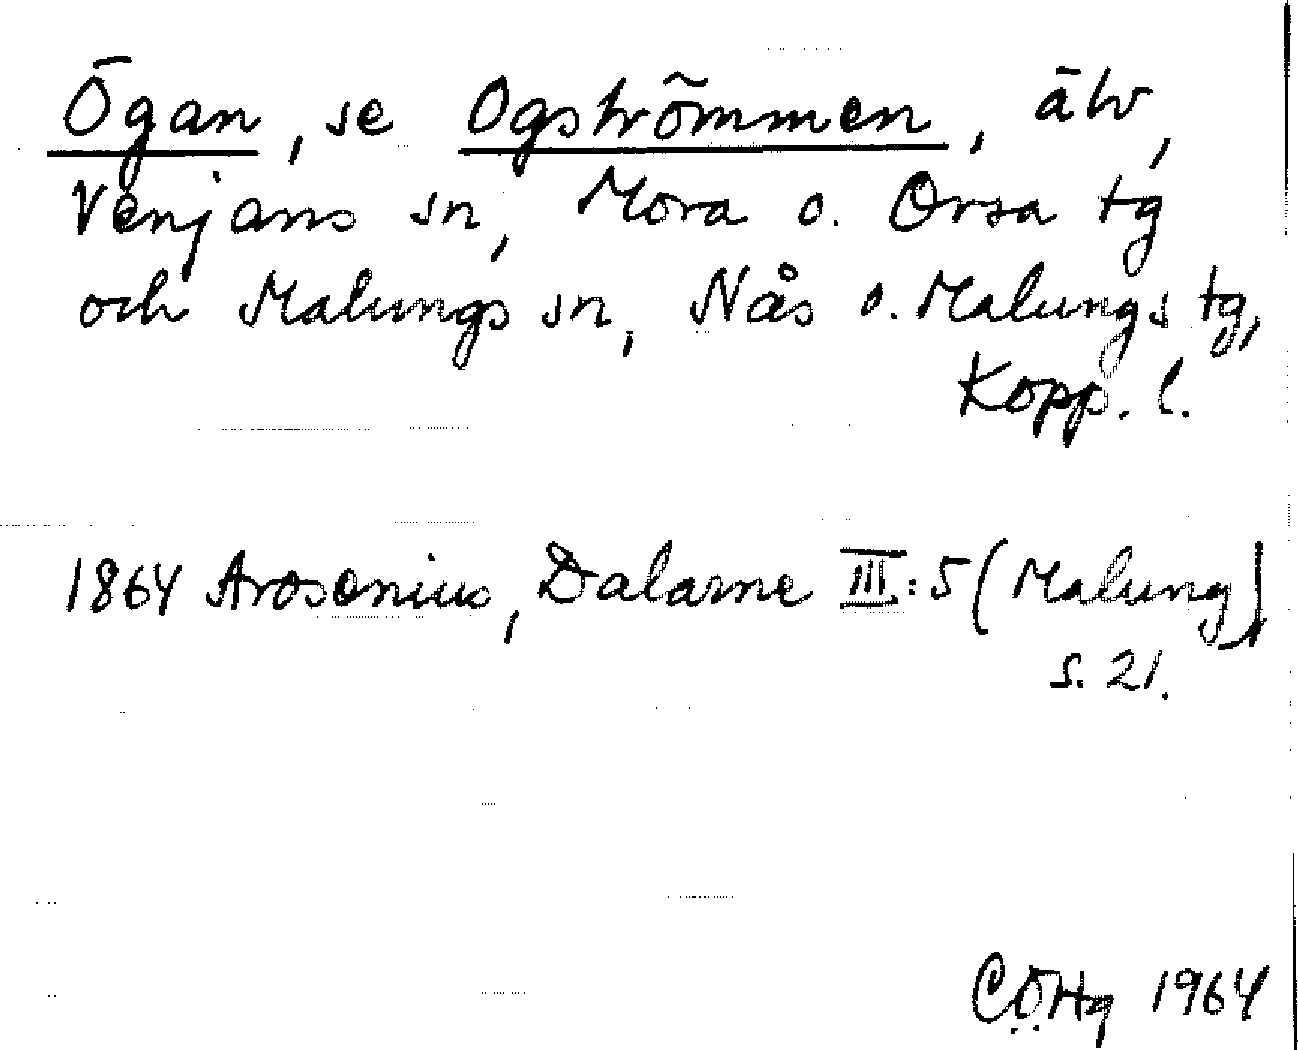 Ögan, se Ogströmmen, älv,
Venjans sn, Mora o. Orsa tg
och Malungs sn, Nås o. Malungs tg,
Kopp. l.
1864 Arosenius, Dalarne III:5 (Malung)
s. 21.
CÖHg 1964